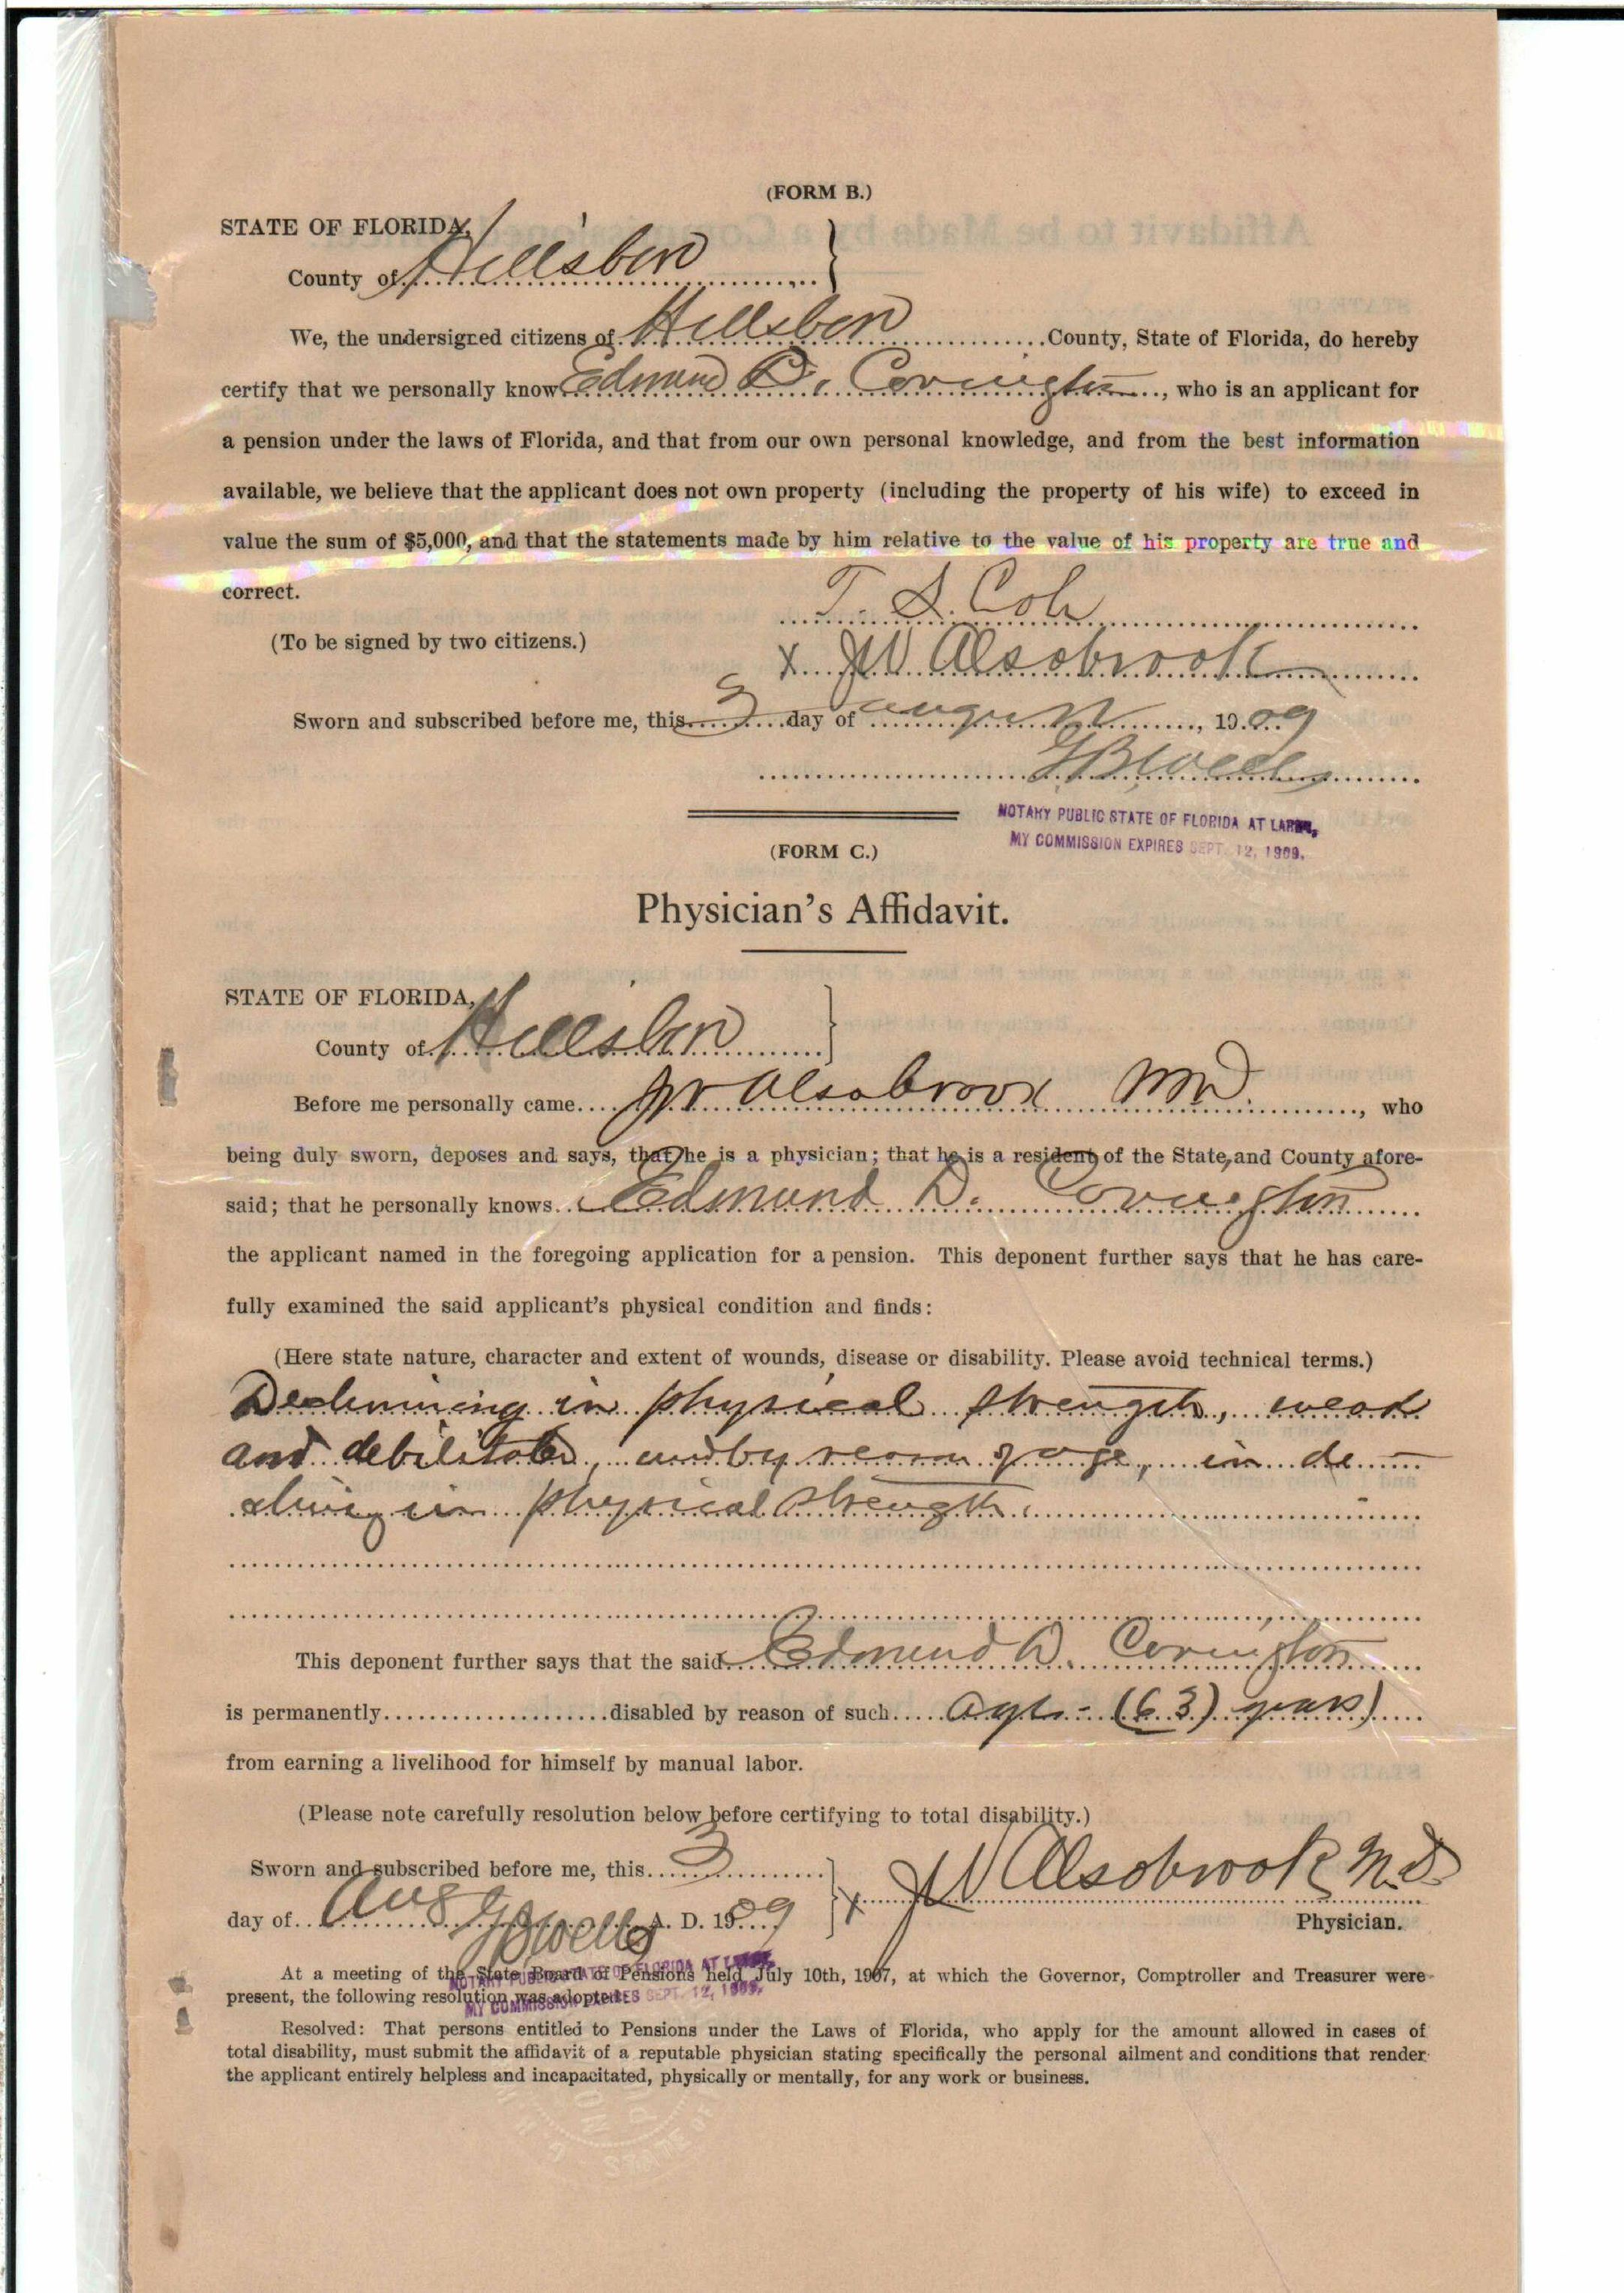 (FORM B.)
STATE OF FLORIDA,
County of Hillsboro
We, the undersigned citizens of Hillsboro County, State of Florida, do hereby
certify that we personally know Edmund D. Covington, who is an applicant for
a pension under the laws of Florida, and that from our own personal knowledge, and from the best information
available, we believe that the applicant does not own property (including the property of his wife) to exceed in
value the sum of $5,000, and that the statements made by him relative to the value of his property are true and
correct.
T. S. 
(To be signed by two citizens.)
x JW Alsobrook
Sworn and subscribed before me, this 3 day of august, 1909
G B Wells
NOTARY PUBLIC STATE OF FLORIDA AT LARGE,
MY COMMISSION EXPIRES SEPT. 12, 1909.
(FORM C.)
Physician's Affidavit.
STATE OF FLORIDA,
County of Hillsboro
Before me personally came JW Alsobrook MD., who
being duly sworn, deposes and says, that he is a physician; that he is a resident of the State, and County afore-
said; that he personally knows Edmund D. Covington
the applicant named in the foregoing application for a pension. This deponent further says that he has care-
fully examined the said applicant's physical condition and finds:
(Here state nature, character and extent of wounds, disease or disability. Please avoid technical terms.)
Declining in physical strength, weak
and debilitated, and by reason of age, in de-
clining in physical strength.
This deponent further says that the said Edmund D. Covington
is permanently disabled by reason of such age - (63) years)
from earning a livelihood for himself by manual labor.
(Please note carefully resolution below before certifying to total disability.)
Sworn and subscribed before me, this 3
x JW Alsobrook M.D.
day of Aug A. D. 1909
Physician.
G B Wells
NOTARY PUBLIC STATE OF FLORIDA AT LARGE,
MY COMMISSION EXPIRES SEPT. 12, 1909.
At a meeting of the State Board of Pensions held July 10th, 1907, at which the Governor, Comptroller and Treasurer were
present, the following resolution was adopted:
Resolved: That persons entitled to Pensions under the Laws of Florida, who apply for the amount allowed in cases of
total disability, must submit the affidavit of a reputable physician stating specifically the personal ailment and conditions that render
the applicant entirely helpless and incapacitated, physically or mentally, for any work or business.